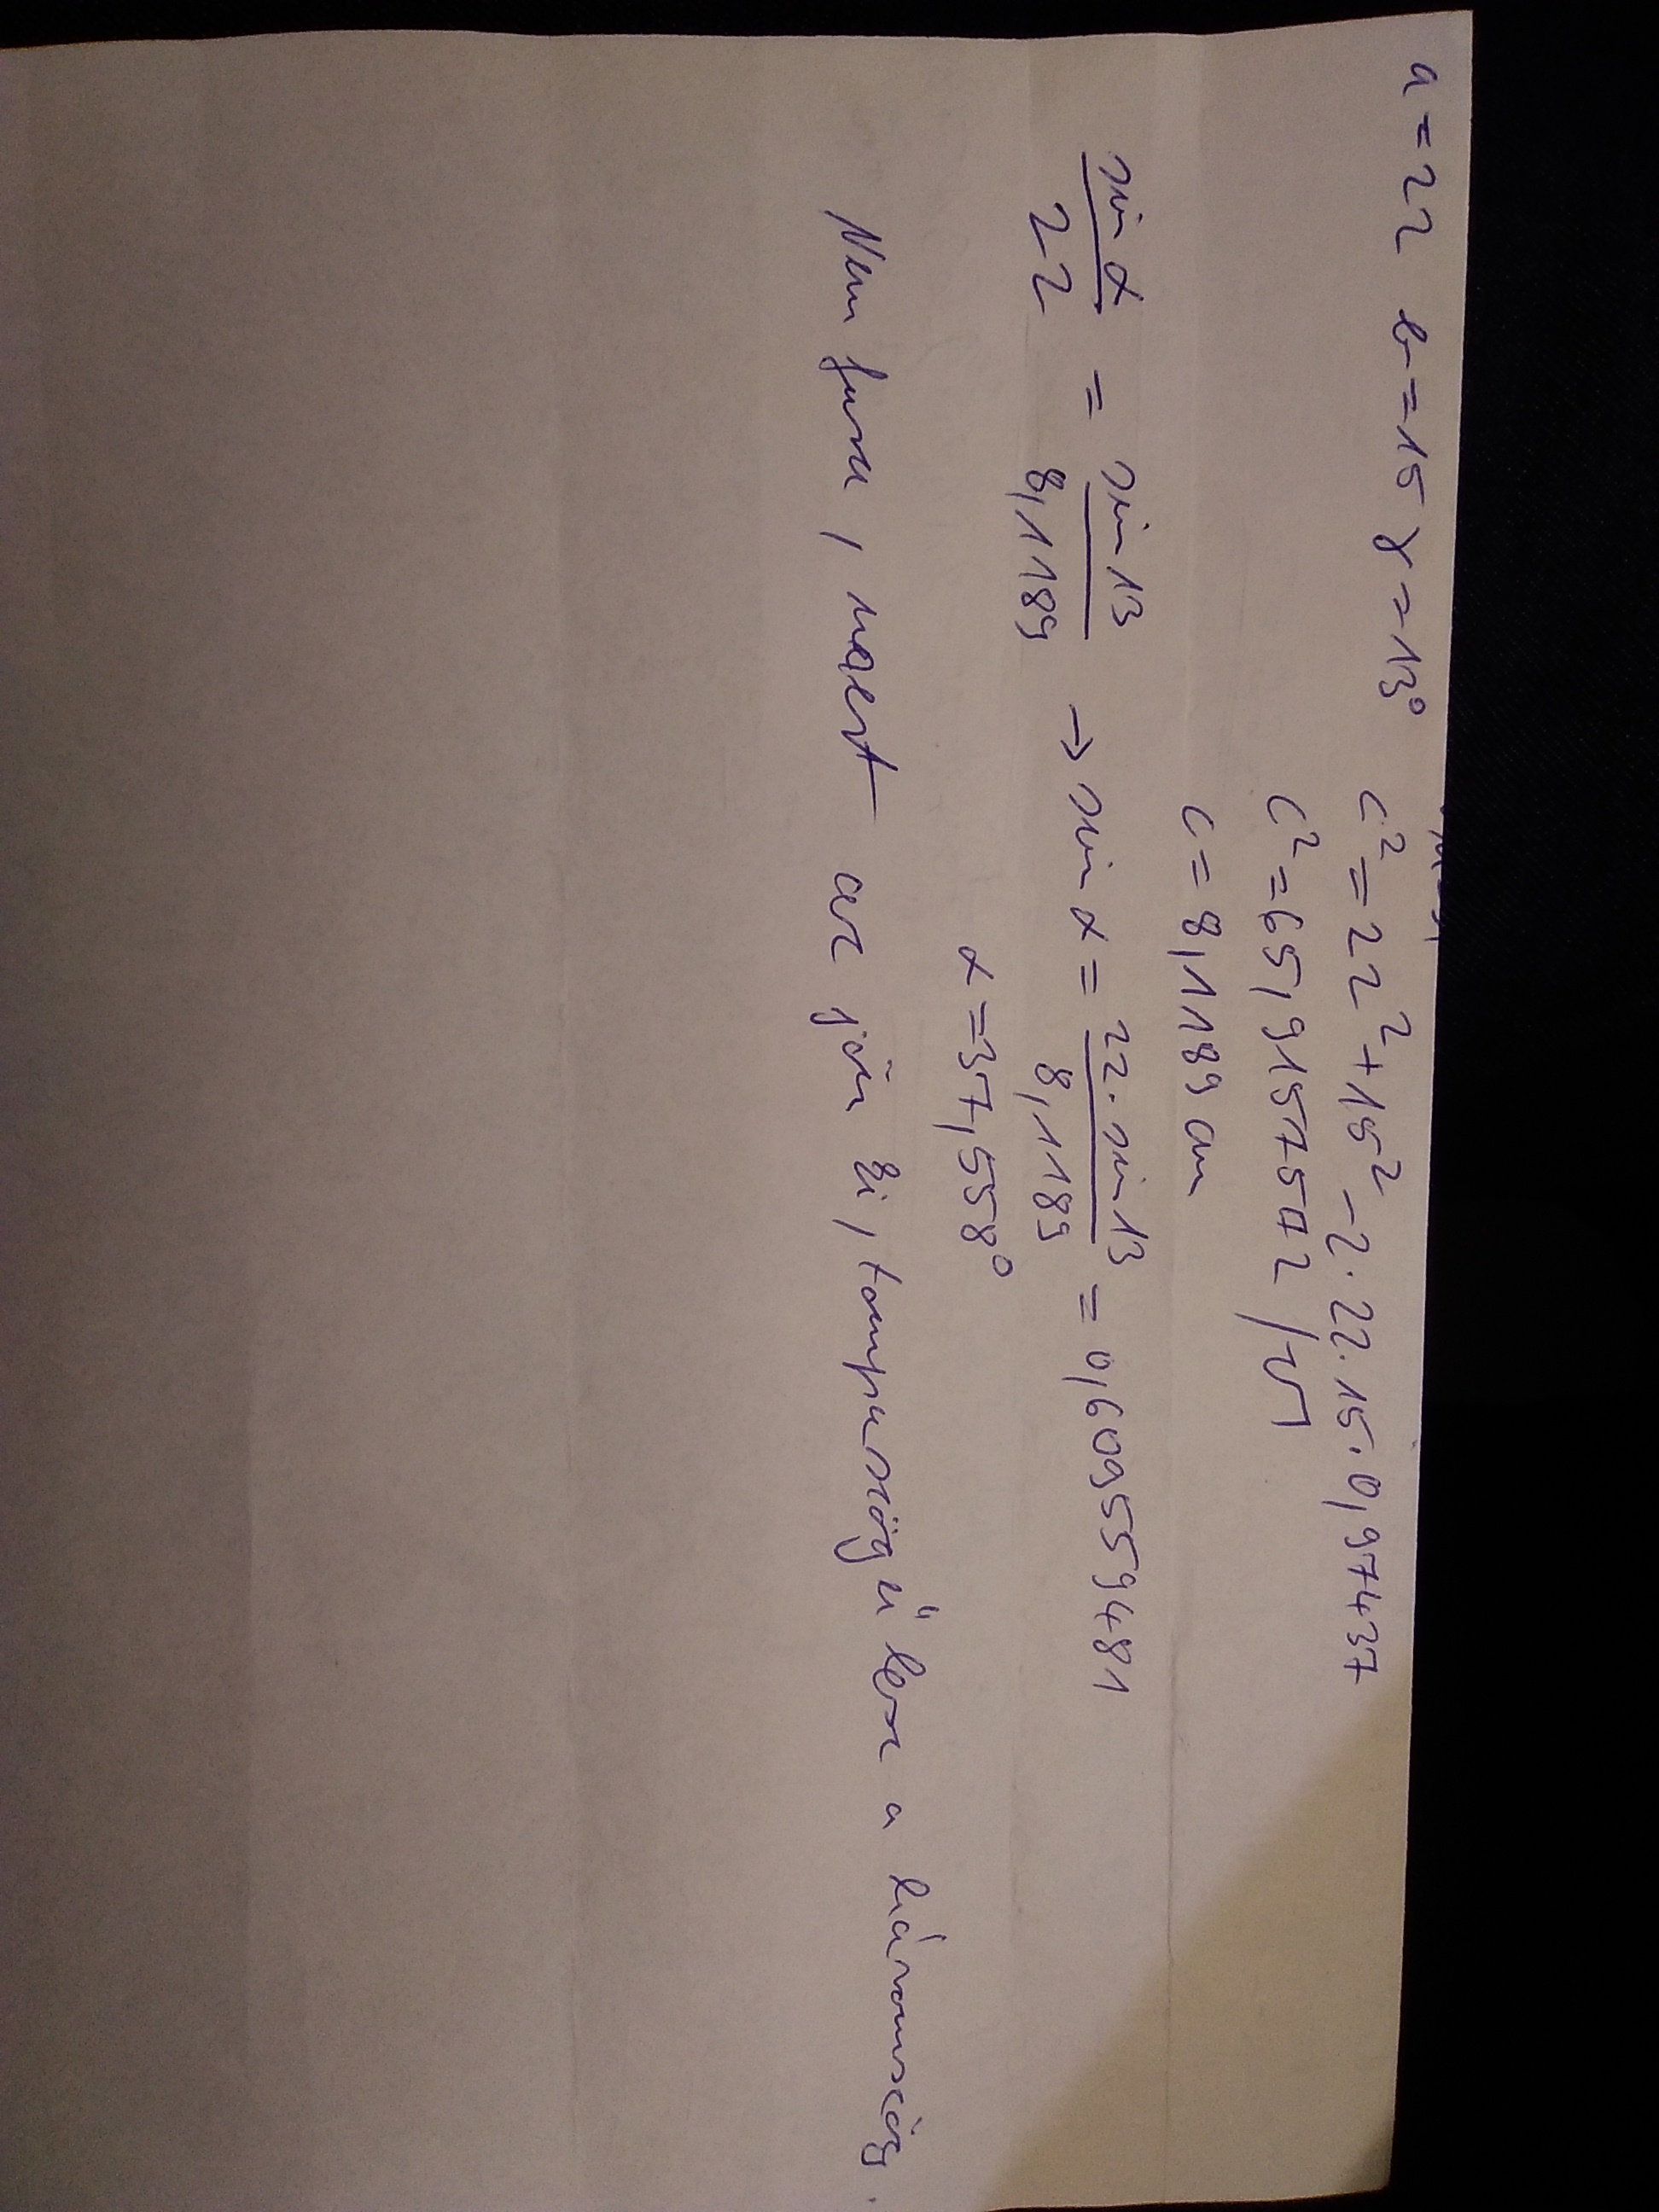 a=22 b=15 γ=13° c²=22²+15²-2·22·15·0,97437
c²=65,91575742 /√
c=8,1189 cm
sin α / 22 = sin 13 / 8,1189 → sin α = 22·sin 13 / 8,1189 = 0,6095559481
α=37,558°
Nem fura, mert az jön ki, tompaszögű lesz a háromszög.